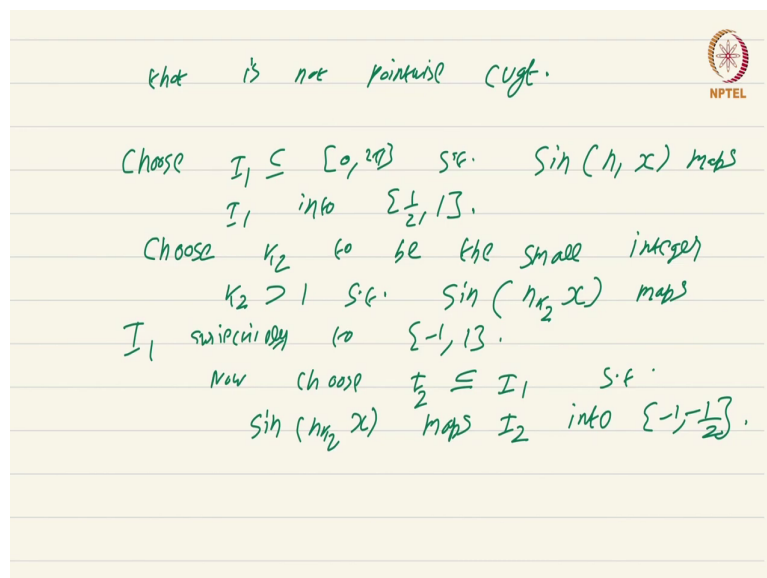 that is not pointwise cvgt.
NPTEL
Choose I₁ ⊆ [0, 2π] s.t. Sin (n₁ x) maps
I₁ into [1/2, 1].
Choose K₂ to be the small integer
K₂ > 1 s.t. Sin (n_K₂ x) maps
I₁ surjectively to [-1, 1].
Now choose I₂ ⊆ I₁ s.t.
Sin (n_K₂ x) maps I₂ into [-1, -1/2].